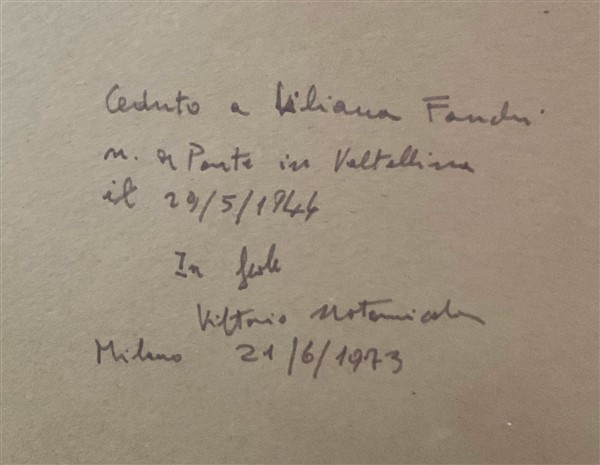 Ceduto a Liliana Fandri
n. a Ponte in Valtellina
il 29/5/1944
In fede
Vittorio Notarnicola
Milano 21/6/1973